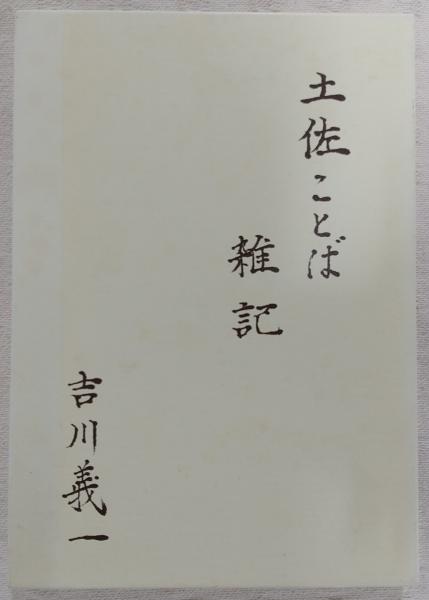 土佐ことば
雑記
吉川義一